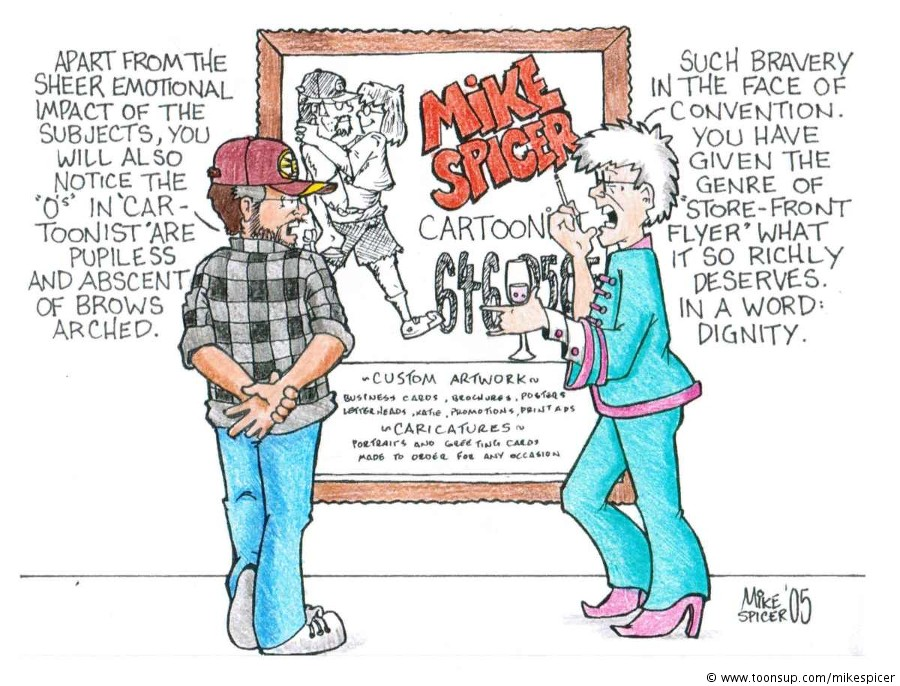 APART FROM THE
SHEER EMOTIONAL
IMPACT OF THE
SUBJECTS, YOU
WILL ALSO
NOTICE THE
"O's" IN "CAR-
TOONIST" ARE
PUPILESS
AND ABSCENT
OF BROWS
ARCHED.
MIKE
SPICER
CARTOONI
646 0505
~CUSTOM ARTWORK~
BUSINESS CARDS, BROCHURES, POSTERS
LETTERHEADS, KATIE, PROMOTIONS, PRINT ADS
~CARICATURES~
PORTRAITS AND GREETING CARDS
MADE TO ORDER FOR ANY OCCASION
SUCH BRAVERY
IN THE FACE OF
CONVENTION.
YOU HAVE
GIVEN THE
GENRE OF
"STORE-FRONT
FLYER" WHAT
IT SO RICHLY
DESERVES.
IN A WORD:
DIGNITY.
MIKE
SPICER '05
© www.toonsup.com/mikespicer